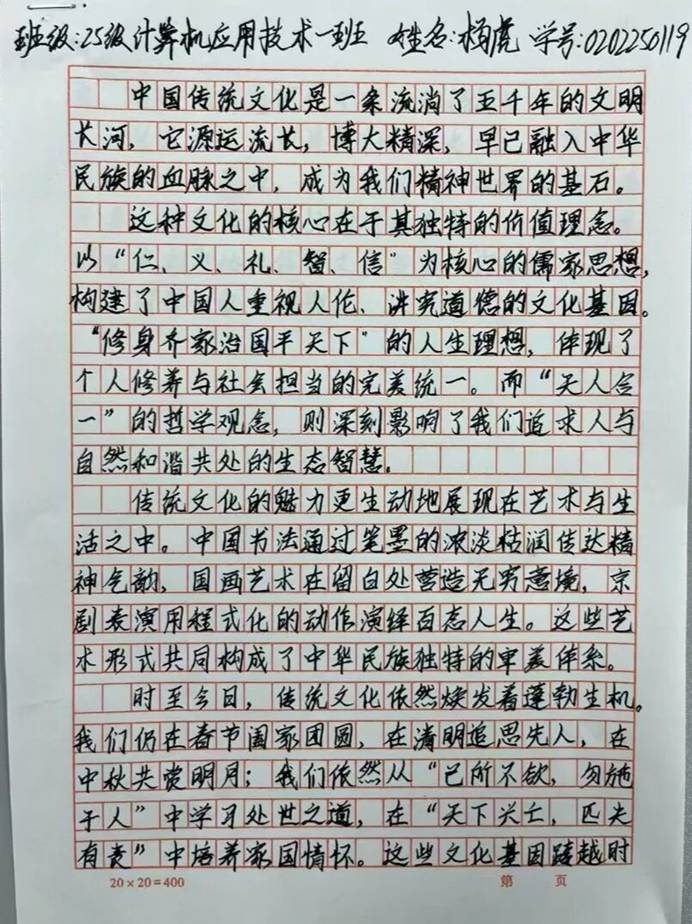 班级:25级计算机应用技术一班 姓名:杨虎 学号:0202250119
中国传统文化是一条流淌了五千年的文明
长河，它源远流长，博大精深，早已融入中华
民族的血脉之中，成为我们精神世界的基石。
这种文化的核心在于其独特的价值理念。
以“仁、义、礼、智、信”为核心的儒家思想，
构建了中国人重视人伦、讲究道德的文化基因。
“修身齐家治国平天下”的人生理想，体现了
个人修养与社会担当的完美统一。而“天人合
一”的哲学观念，则深刻影响了我们追求人与
自然和谐共处的生态智慧。
传统文化的魅力更生动地展现在艺术与生
活之中。中国书法通过笔墨的浓淡枯润传达精
神气韵，国画艺术在留白处营造无穷意境，京
剧表演用程式化的动作演绎百态人生。这些艺
术形式共同构成了中华民族独特的审美体系。
时至今日，传统文化依然焕发着蓬勃生机。
我们仍在春节阖家团圆，在清明追思先人，在
中秋共赏明月；我们依然从“己所不欲，勿施
于人”中学习处世之道，在“天下兴亡，匹夫
有责”中培养家国情怀。这些文化基因跨越时
20×20=400 第 页